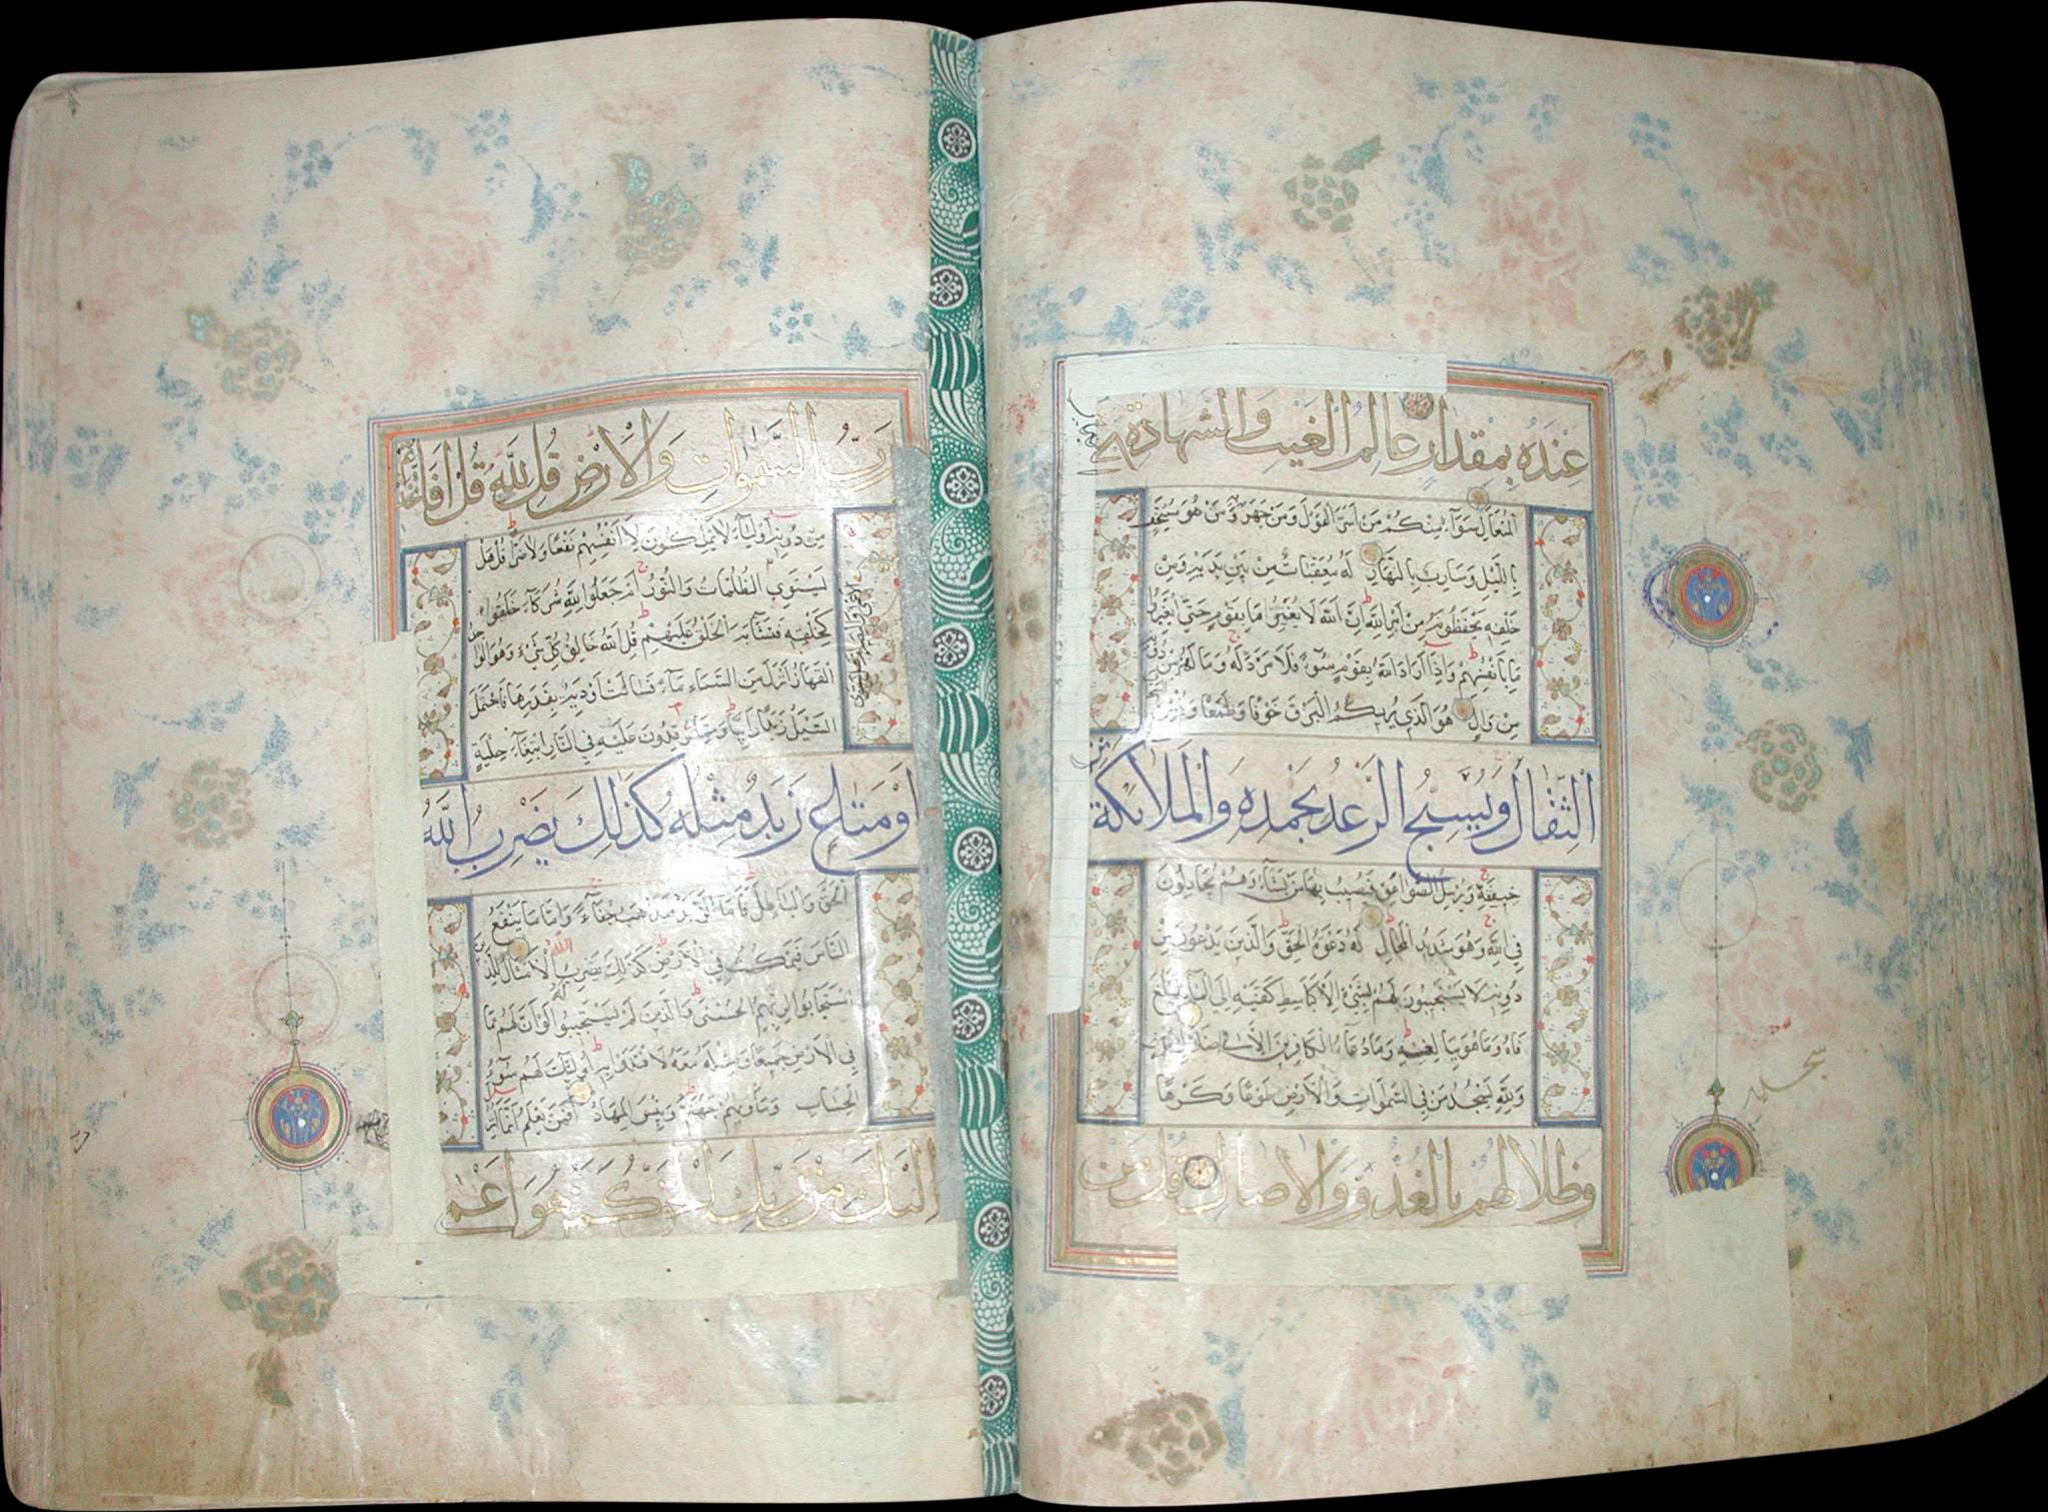 عِنْدَهُ بِمِقْدَارٍ عَالِمُ الْغَيْبِ وَالشَّهَادَةِ
الْمُتَعَالِ سَوَآءٌ مِنْكُمْ مَنْ اَسَرَّ الْقَوْلَ وَمَنْ جَهَرَ وَمَنْ هُوَ مُسْتَخْفٍ
بِاللَّيْلِ وَسَارِبٌ بِالنَّهَارِ لَهُ مُعَقِّبَاتٌ مِنْ بَيْنِ يَدَيْهِ وَمِنْ
خَلْفِهِ يَحْفَظُونَهُ مِنْ اَمْرِ اللَّهِ اِنَّ اللَّهَ لَا يُغَيِّرُ مَا بِقَوْمٍ حَتَّى يُغَيِّرُوا
مَا بِاَنْفُسِهِمْ وَاِذَا اَرَادَ اللَّهُ بِقَوْمٍ سُوْءًا فَلَا مَرَدَّ لَهُ وَمَا لَهُمْ مِنْ دُونِهِ
مِنْ وَالٍ هُوَ الَّذِي يُرِيكُمُ الْبَرْقَ خَوْفًا وَطَمَعًا وَيُنْشِئُ
الثِّقَالَ وَيُسَبِّحُ الرَّعْدُ بِحَمْدِهِ وَالْمَلَائِكَةُ
خِيفَتِهِ وَيُرْسِلُ الصَّوَاعِقَ فَيُصِيبُ بِهَا مَنْ يَشَآءُ وَهُمْ يُجَادِلُونَ
فِي اللَّهِ وَهُوَ شَدِيدُ الْمِحَالِ لَهُ دَعْوَةُ الْحَقِّ وَالَّذِينَ يَدْعُونَ مِنْ
دُونِهِ لَا يَسْتَجِيبُونَ لَهُمْ بِشَيْءٍ اِلَّا كَبَاسِطِ كَفَّيْهِ اِلَى الْمَآءِ لِيَبْلُغَ
فَاهُ وَمَا هُوَ بِبَالِغِهِ وَمَا دُعَآءُ الْكَافِرِينَ اِلَّا فِي ضَلَالٍ
وَلِلَّهِ يَسْجُدُ مَنْ فِي السَّمٰوَاتِ وَالْاَرْضِ طَوْعًا وَكَرْهًا
وَظِلَالُهُمْ بِالْغُدُوِّ وَالْاٰصَالِ قُلْ مَنْ
سجدة
رَبُّ السَّمٰوَاتِ وَالْاَرْضِ قُلِ اللَّهُ قُلْ اَفَاتَّخَذْتُمْ
مِنْ دُونِهِ اَوْلِيَآءَ لَا يَمْلِكُونَ لِاَنْفُسِهِمْ نَفْعًا وَلَا ضَرًّا قُلْ هَلْ
يَسْتَوِي الظُّلُمَاتُ وَالنُّورُ اَمْ جَعَلُوا لِلَّهِ شُرَكَآءَ خَلَقُوا
كَخَلْقِهِ فَتَشَابَهَ الْخَلْقُ عَلَيْهِمْ قُلِ اللَّهُ خَالِقُ كُلِّ شَيْءٍ وَهُوَ الْوَاحِدُ
الْقَهَّارُ اَنْزَلَ مِنَ السَّمَآءِ مَآءً فَسَالَتْ اَوْدِيَةٌ بِقَدَرِهَا فَاحْتَمَلَ
السَّيْلُ زَبَدًا رَابِيًا وَمِمَّا يُوقِدُونَ عَلَيْهِ فِي النَّارِ ابْتِغَآءَ حِلْيَةٍ
اَوْ مَتَاعٍ زَبَدٌ مِثْلُهُ كَذٰلِكَ يَضْرِبُ اللَّهُ
الْحَقَّ وَالْبَاطِلَ فَاَمَّا الزَّبَدُ فَيَذْهَبُ جُفَآءً وَاَمَّا مَا يَنْفَعُ
النَّاسَ فَيَمْكُثُ فِي الْاَرْضِ كَذٰلِكَ يَضْرِبُ اللَّهُ الْاَمْثَالَ لِلَّذِينَ
اسْتَجَابُوا لِرَبِّهِمُ الْحُسْنٰى وَالَّذِينَ لَمْ يَسْتَجِيبُوا لَهُ لَوْ اَنَّ لَهُمْ مَا
فِي الْاَرْضِ جَمِيعًا وَمِثْلَهُ مَعَهُ لَافْتَدَوْا بِهِ اُولٰئِكَ لَهُمْ سُوْٓءُ
الْحِسَابِ وَمَاْوٰيهُمْ جَهَنَّمُ وَبِئْسَ الْمِهَادُ اَفَمَنْ يَعْلَمُ اَنَّمَا اُنْزِلَ
اِلَيْكَ مِنْ رَبِّكَ الْحَقُّ كَمَنْ هُوَ اَعْمٰى